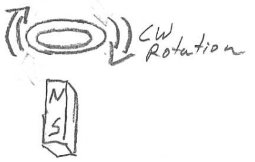 CW
Rotation
N
S